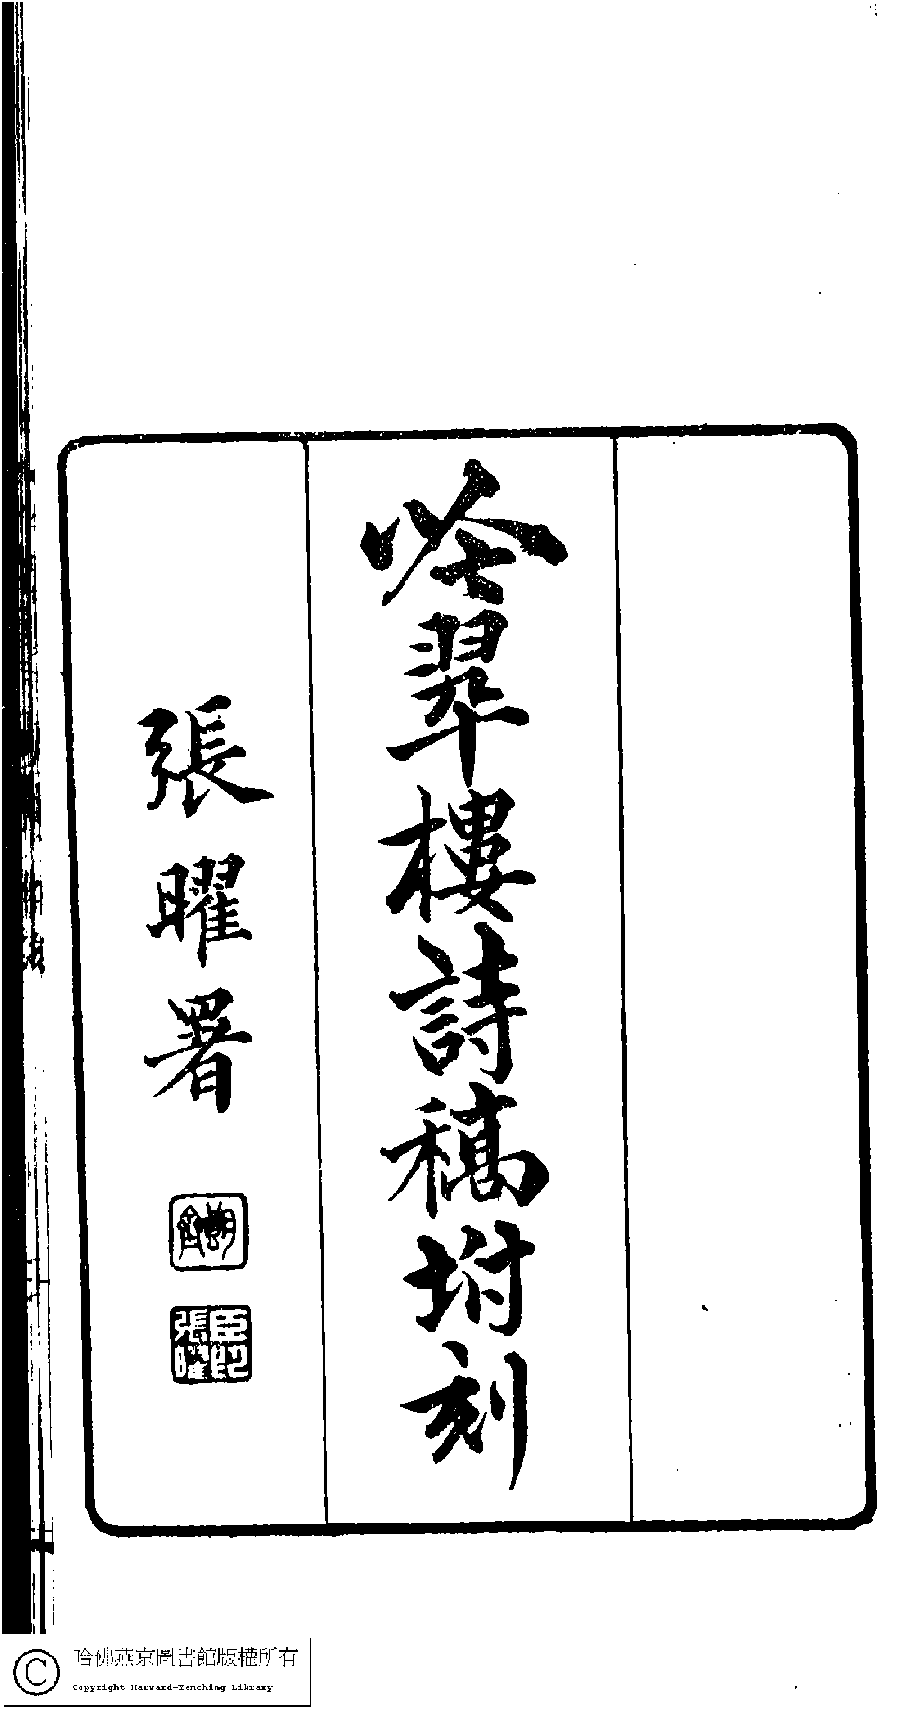 唫翠樓詩稿坿刻
張曜署
朗齋
臣印張曜
哈佛燕京圖書館版權所有
Copyright Harvard-Yenching Library